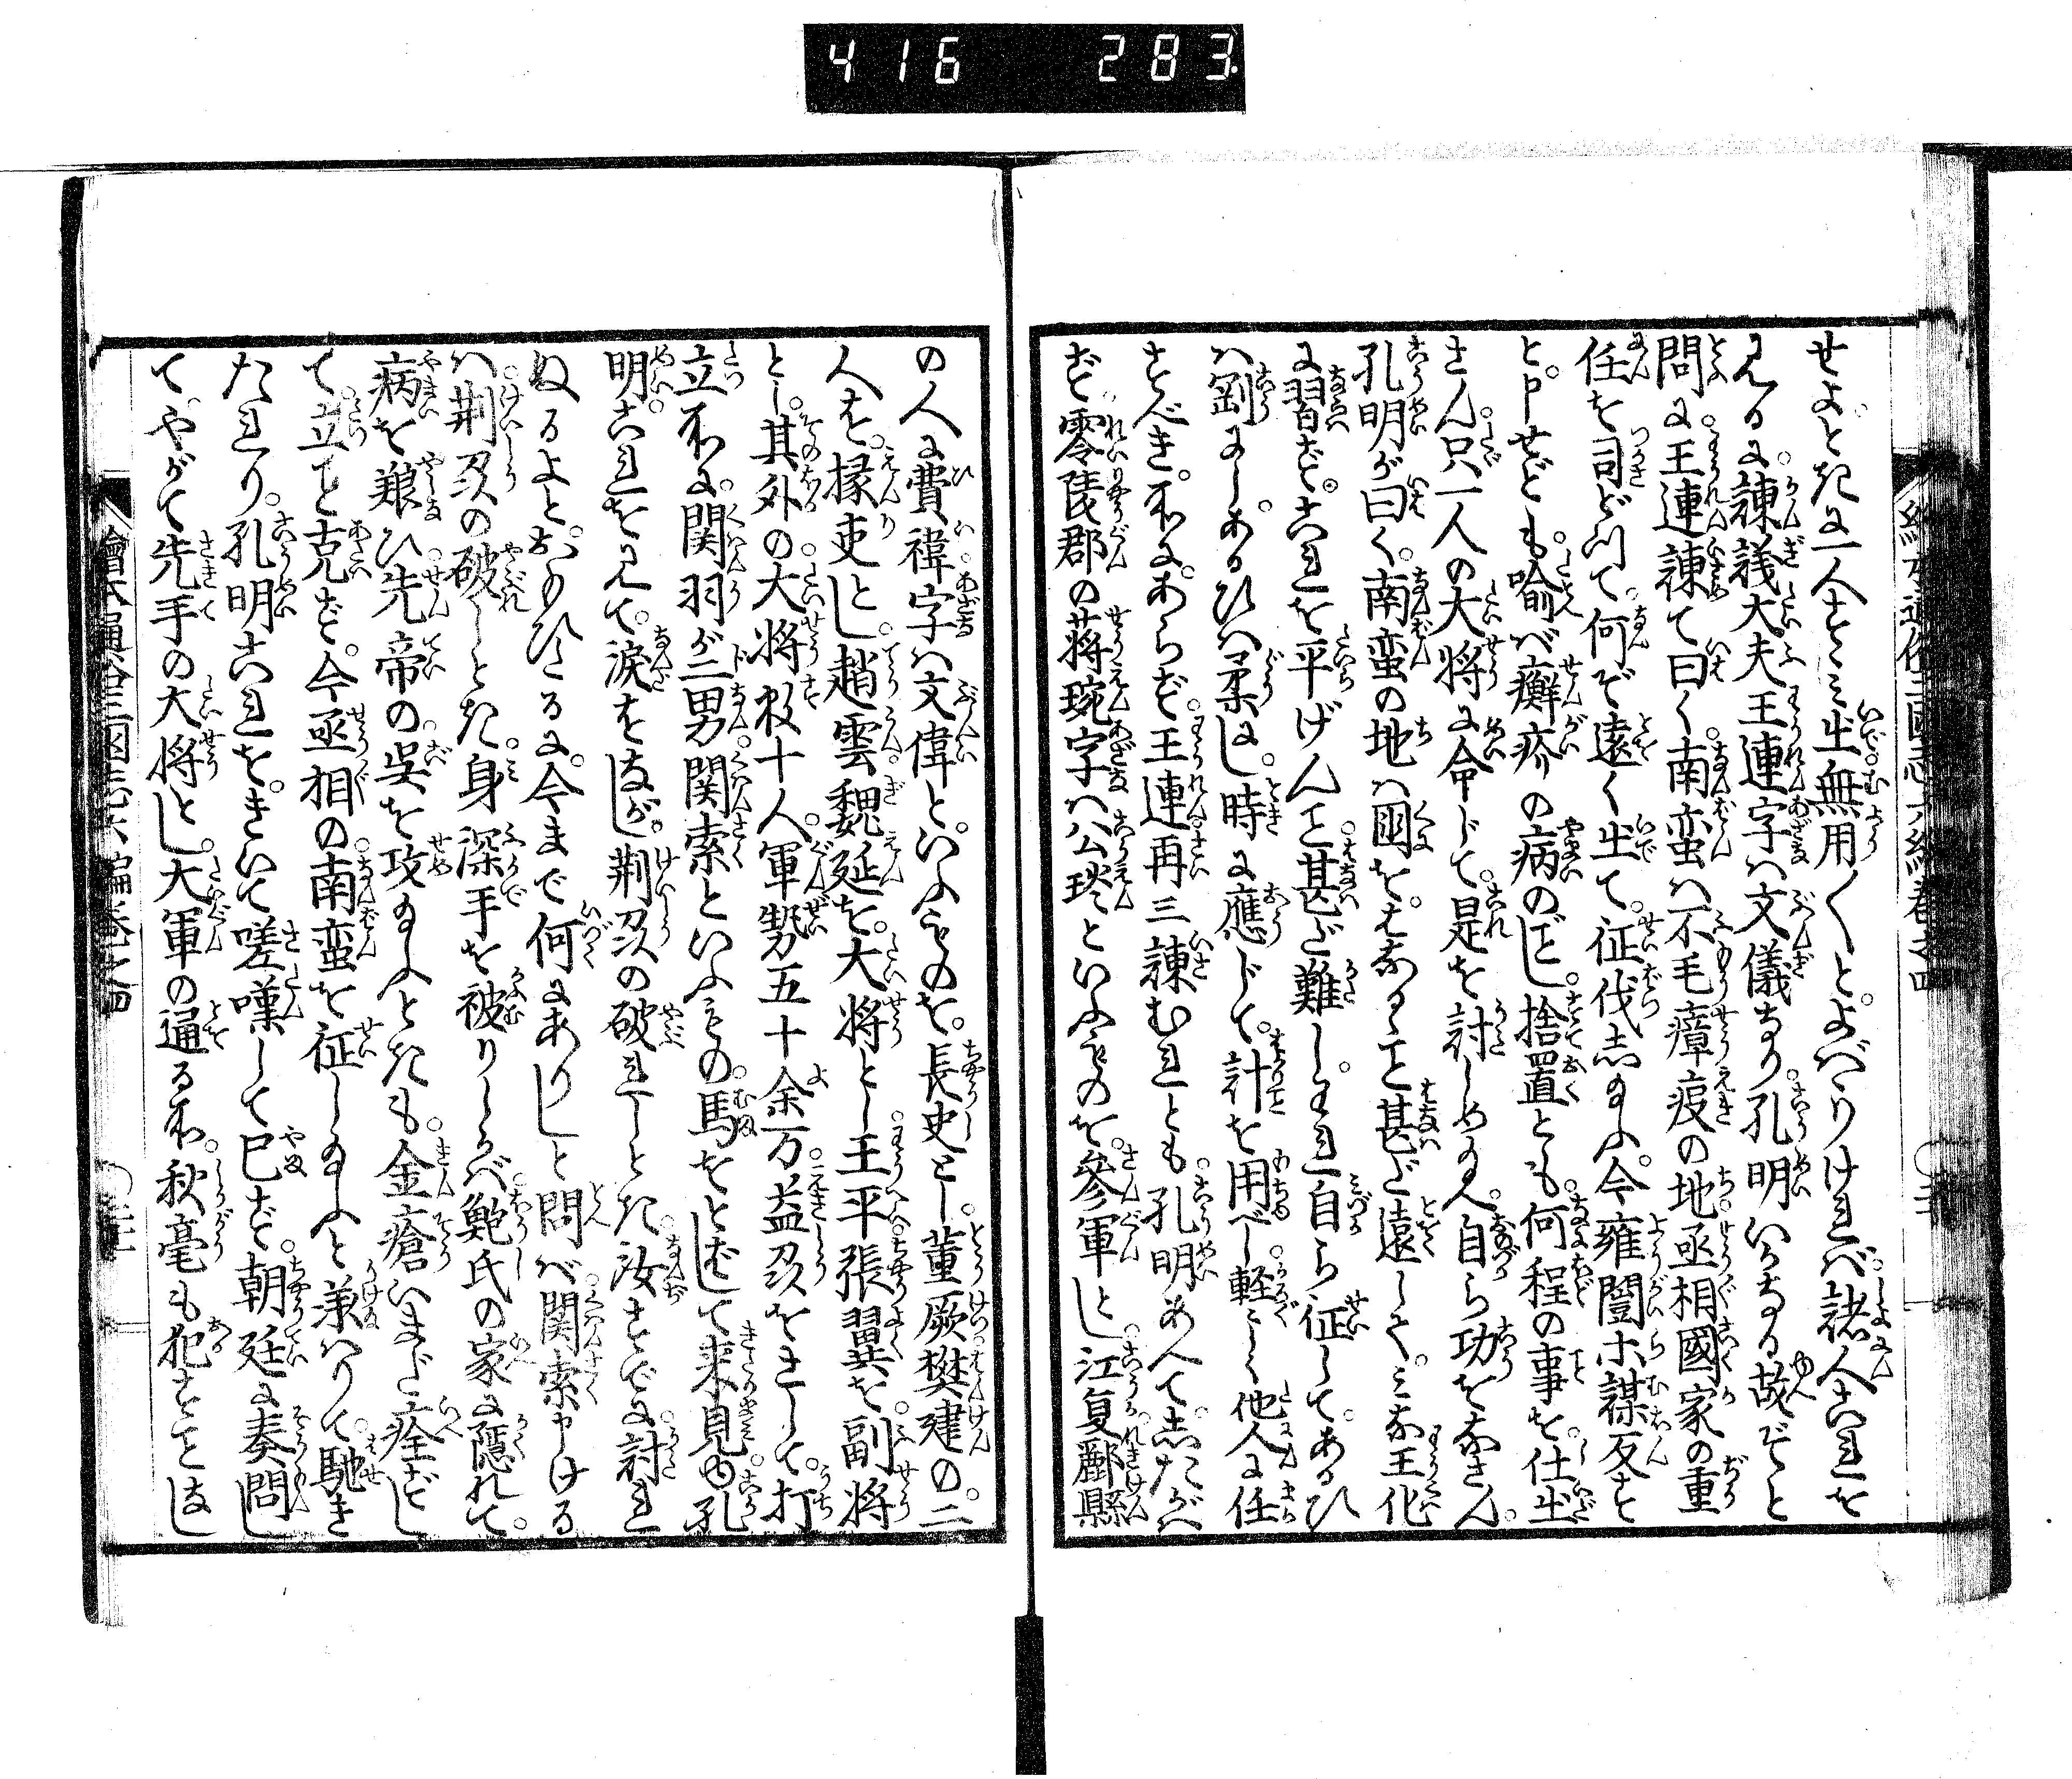 416 283
繪本通俗三國志六編巻之四
せよ。ときに一人すゝみ出無用〱と。よばゝりければ。諸人これを
みるに。諫議大夫王連字は文儀なり。孔明いかなる故ぞと
問に。王連諫て曰く。南蛮は不毛瘴疫の地。丞相國家の重
任を司どつて。何ぞ遠く出て。征伐し玉ふ。今雍闓ホ謀反す
と申せども。喩ば癬疥の病のごとし。捨置とも。何程の事を仕出
さん。只一人の大将に命じて。是を討しめ玉へ。自ら功をなさん。
孔明が曰く。南蛮の地は國を。はなるゝこと甚だ遠して。みな王化
に習ず。これを平げんこと甚だ難し。われ自ら征して。あるひ
は剛にし。あるひは柔にし。時に應じて。計を用べし。軽〱しく他人に任
すべき。所にあらず。王連再三諫むれとも。孔明あへて。したがは
ず。零陵郡の蒋琬字は公琰といふものを。參軍とし。江夏鄳縣
の人に費禕字は文偉と。いふものを。長史とし。董厥樊建の。二
人を。掾吏とし。趙雲魏延を。大将とし。王平張翼を。副将
とし。其外の大将数十人。軍勢五十余万。益州をさして。打
立所に。関羽が二男。関索といふもの。馬をとばして来見ゆ。孔
明。これをみて。涙をながし。荆州の破れしとき。汝すでに討れ
ぬるよと。おもひゐたるに。今まで何くにありしと問ば。関索申ける
は。荆州の破しとき。身深手を被りしかば。鮑氏の家に隠れて。
病を艱ひ。先帝の。呉を攻玉ふときも。金瘡いまだ痊ずし
て。立こと克ず。今丞相の。南蛮を征し玉ふと兼はりて。馳き
たれり。孔明これを。きいて嗟嘆して已ず。朝廷に奏問し
て。やがて先手の大将とし。大軍の通る所。秋毫も犯すことなし
繪本通俗三國志六編巻之四